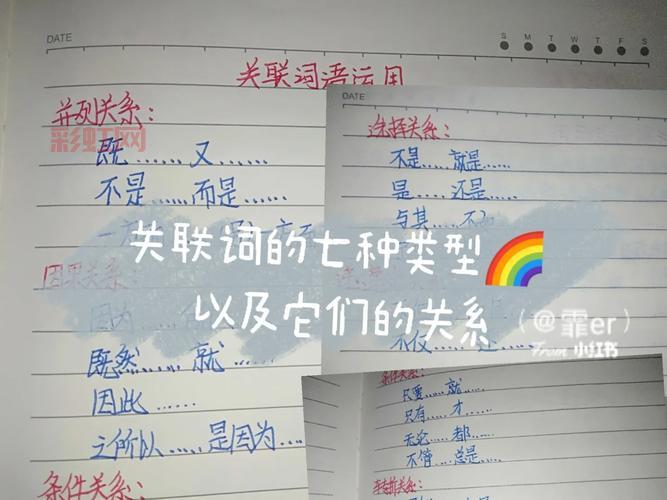 DATE
S M T W T F S
关联词语运用
并列关系：
彩虹网
既……又……
不是……而是……
因果关系：
因为……
既然……就……
因此……
之所以……是因为……
条件关系：
DATE
选择关系：
不是……就是……
是……还是……
与其……不
不仅……还……
条件关系：
只要……就……
只有……才……
无论……都……
不管……总是……
关联词的七种类型🌈
以及它们的关系
（@霏er）
From 小红书